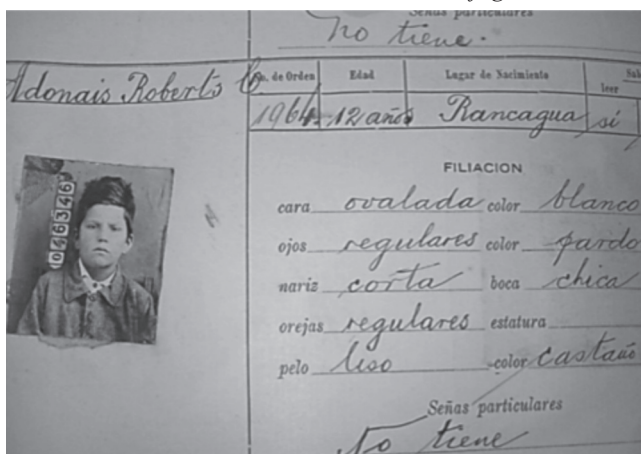 Señas particulares
No tiene.
Adonais Roberts
No. de Orden Edad Lugar de Nacimiento
leer
1964 12 años Rancagua si
046346
FILIACION
cara ovalada color blanco
ojos regulares color pardo
nariz corta boca chica
orejas regulares estatura
pelo liso color castaño
Señas particulares
No tiene